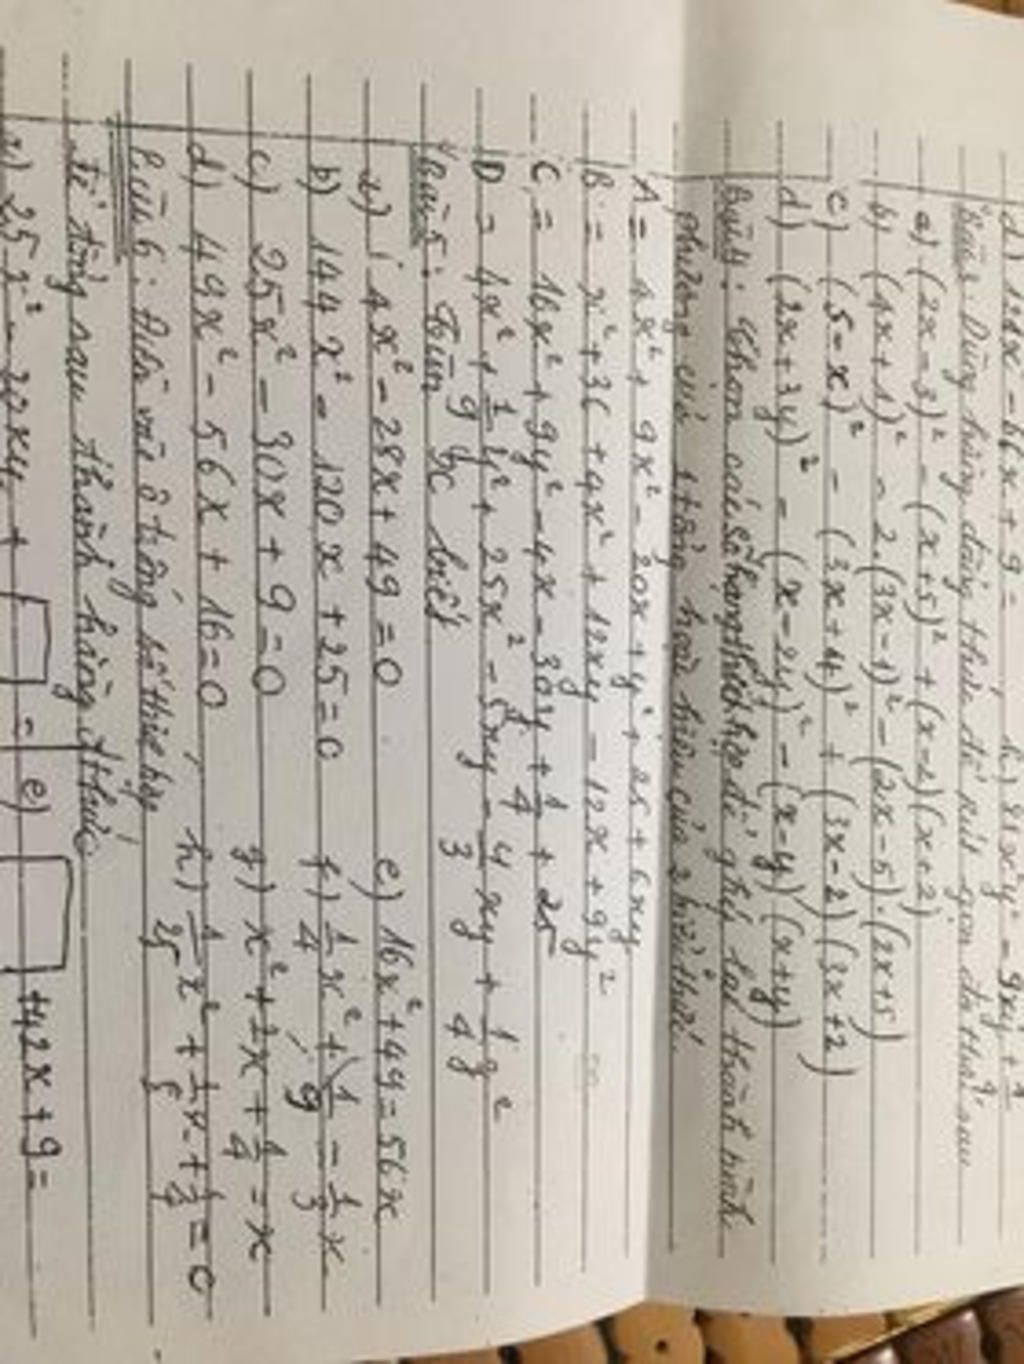 d) 121x² - 66x + 9 = h) 81x²y² - 9xy + 1/4
Bài 3: Dùng hằng đẳng thức để rút gọn đa thức sau
a) (2x-3)² - (x+5)² + (x-2)(x+2)
b) (4x+1)² - 2.(3x-1)² - (2x-5).(2x+5)
c) (5-x)² - (3x+4)² + (3x-2)(3x+2)
d) (2x+3y)² - (x-2y)² - (x-y)(x+y)
Bài 4: Chọn các số hạng thích hợp để ghép lại thành bình
phương của 1 tổng hoặc hiệu của 2 biểu thức
A = 4x² + 9x² - 20x + y² + 25 + 6xy
B = x² + 36 + 4x² + 12xy - 12x + 9y²
C = 16x² + 9y² - 4x - 30y + 1/4 + 25
D = 4x² + 1/9 y² + 25x² - 5xy - 4/3 xy + 1/4 y²
Bài 5: Tìm x biết
a) 4x² - 28x + 49 = 0 e) 16x² + 49 = 56x
b) 144x² - 120x + 25 = 0 f) 1/4 x² + 1/9 = 1/3 x
c) 25x² - 30x + 9 = 0 g) x² + 2x + 1/4 = x
d) 49x² - 56x + 16 = 0 h) 1/25 x² + 1/5 = 0
Bài 6: Điền vào ô trống số thích hợp
để tổng sau thành hằng đẳng thức
a) 25x² - 22xy + □ = e) □ + 42x + 9 =